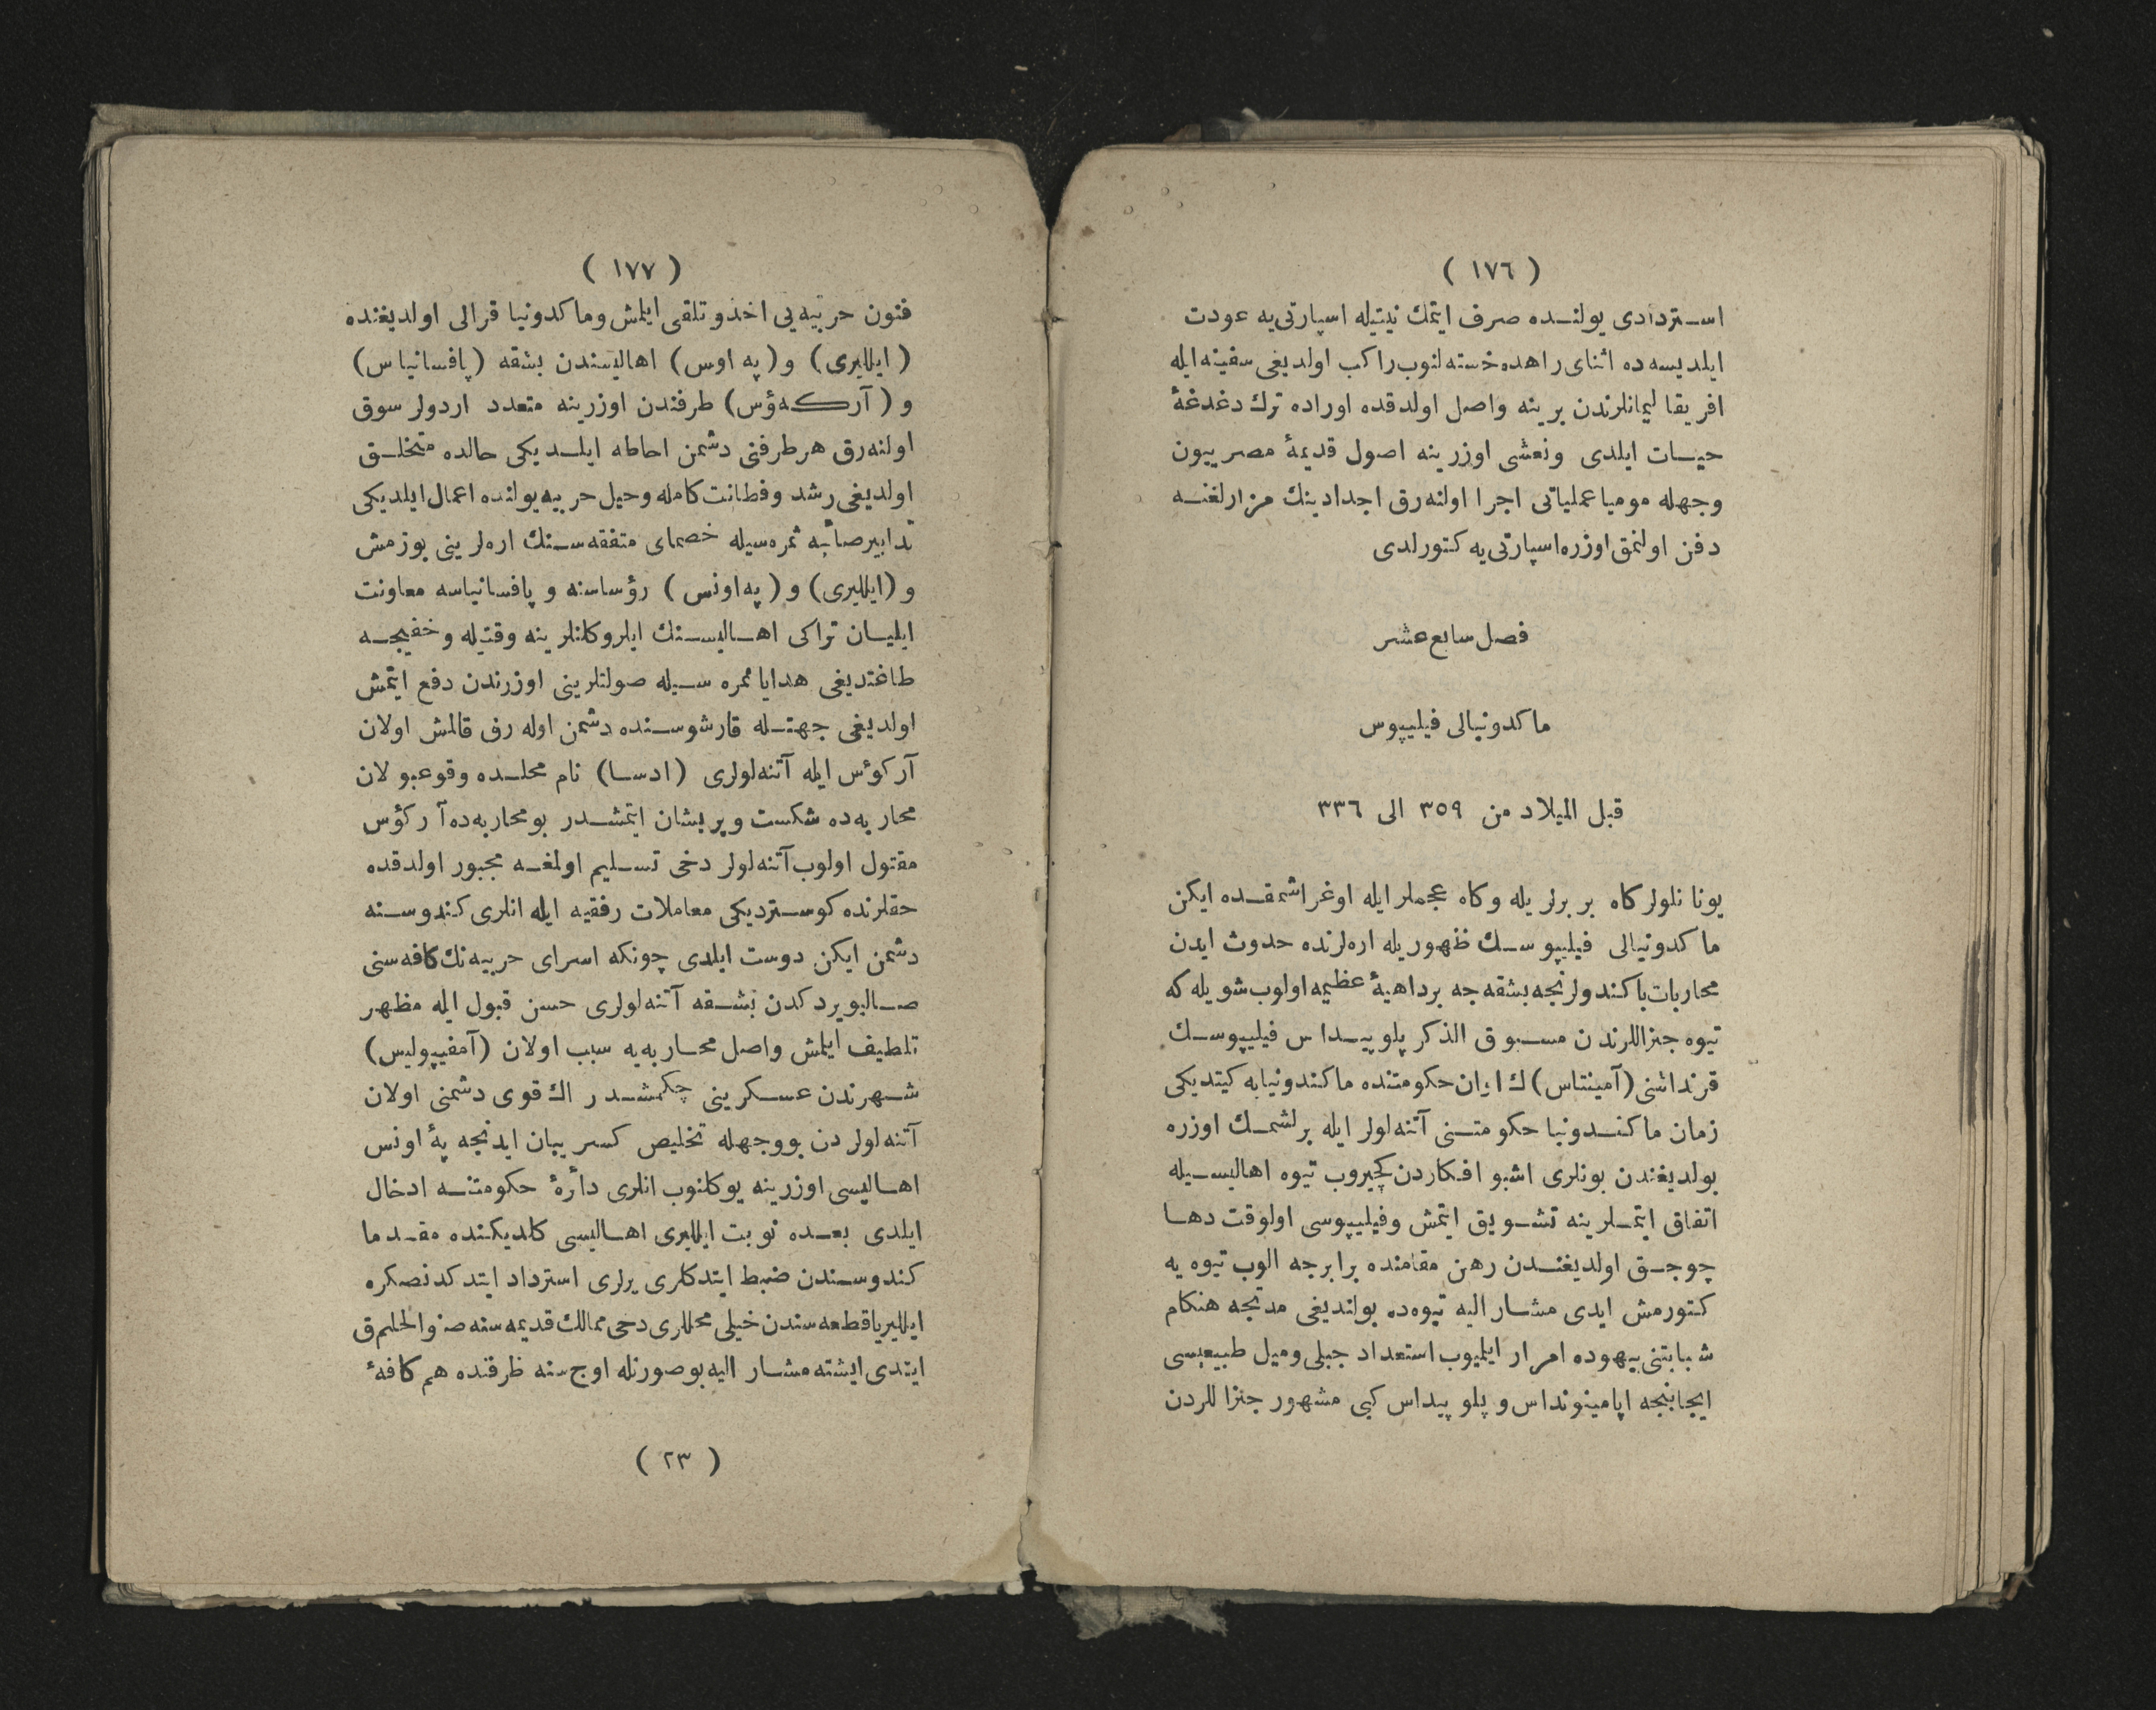 ( ١٧٦ )
استردادى يولنده صرف ايتمك نيتيله اسپارتى‌يه عودت
ايلديسه ده اثناى راهده خسته لنوب راكب اولديغى سفينه ايله
افريقا ليمانلرندن برينه واصل اولدقده اوراده ترك دغدغهٔ
حيات ايلدى ونعشى اوزرينه اصول قديمهٔ مصريیون
وجهله موميا عملياتى اجرا اولنه‌رق اجدادينك مزارلغنه
دفن اولنمق اوزره اسپارتى‌يه كتورلدى
فصل سابع عشر
ماكدونيالى فيليپوس
قبل الميلاد من ٣٥٩ الى ٣٣٦
يونانلولر كاه بر برلريله وكاه عجملر ايله اوغراشمقده ايكن
ماكدونيالى فيليپوسك ظهوريله اره‌لرنده حدوث ايدن
محاربات با كندولرنجه بشقه‌جه بر داهيهٔ عظيمه اولوب شويله كه
تيوه جنراللرندن مسبوق الذكر پلوپيداس فيليپوسك
قرنداشى (آمينتاس) ك اءان حكومتنده ماكندونيايه كيتديكى
زمان ماكندونيا حكومتنى آتنه‌لولر ايله برلشمك اوزره
بولديغندن بونلرى اشبو افكاردن كچيروب تيوه اهاليسيله
اتفاق ايتملرينه تشويق ايتمش وفيليپوسى اولوقت دها
چوجق اولديغندن رهن مقامنده برابرجه الوب تيوه يه
كتورمش ايدى مشار اليه تيوه‌ده بولنديغى مدتجه هنكام
شبابتنى بيهوده امرار ايليوب استعداد جبلى وميل طبيعيسى
ايجابنجه اپامينونداس و پلوپيداس كبى مشهور جنراللردن
( ١٧٧ )
فنون حربيه‌يى اخذ وتلقى ايلمش وماكدونيا قرالى اولديغنده
( ايلليرى ) و ( په اوس ) اهاليسندن بشقه ( پافسانياس )
و ( آركه‌ؤس ) طرفندن اوزرينه متعدد اردولر سوق
اولنه‌رق هر طرفنى دشمن احاطه ايلديكى حالده متخلق
اولديغى رشد وفطانت كامله وحيل حربيه يولنده اعمال ايلديكى
تدابير صائبه ثمره‌سيله خصماى متفقه‌سنك اره‌لرينى بوزمش
و ( ايلليرى ) و ( په‌اونس ) رؤساسنه و پافسانياسه معاونت
ايليان تراكى اهاليسنك ايلروكلنلرينه وقتيله وخفيجه
طاغتديغى هدايا ثمره سيله صولتلرينى اوزرندن دفع ايتمش
اولديغى جهتله قارشوسنده دشمن اوله رق قالمش اولان
آركوؤس ايله آتنه‌لولرى ( ادسا ) نام محلده وقوعبولان
محاربه‌ده شكست وپريشان ايتمشدر بو محاربه‌ده آركؤس
مقتول اولوب آتنه‌لولر دخى تسليم اولمغه مجبور اولدقده
حقلرنده كوستردیكى معاملات رفقيه ايله انلرى كندوسنه
دشمن ايكن دوست ايلدى چونكه اسراى حربيه‌نك كافه‌سنى
صاليويردكدن بشقه آتنه‌لولرى حسن قبول ايله مظهر
تلطيف ايلمش واصل محاربه‌يه سبب اولان ( آمفيپوليس )
شهرندن عسكرينى چكمشدر اك قوى دشمنى اولان
آتنه‌لولردن بووجهله تخليص كسر يبان ايدنجه پهٔ اونس
اهاليسى اوزرينه يوكلنوب انلرى دائرهٔ حكومتنه ادخال
ايلدى بعده نوبت ايلليرى اهاليسى كلديكنده مقدما
كندوسندن ضبط ايتدكلرى يرلرى استرداد ايتدكدنصكره
ايلليريا قطعه سندن خيلى محللرى دخى ممالك قديمه‌سنه ضم والحق
ايتدى ايشته مشار اليه بوصورتله اوج سنه ظرفنده هم كافهٔ
( ٢٣ )